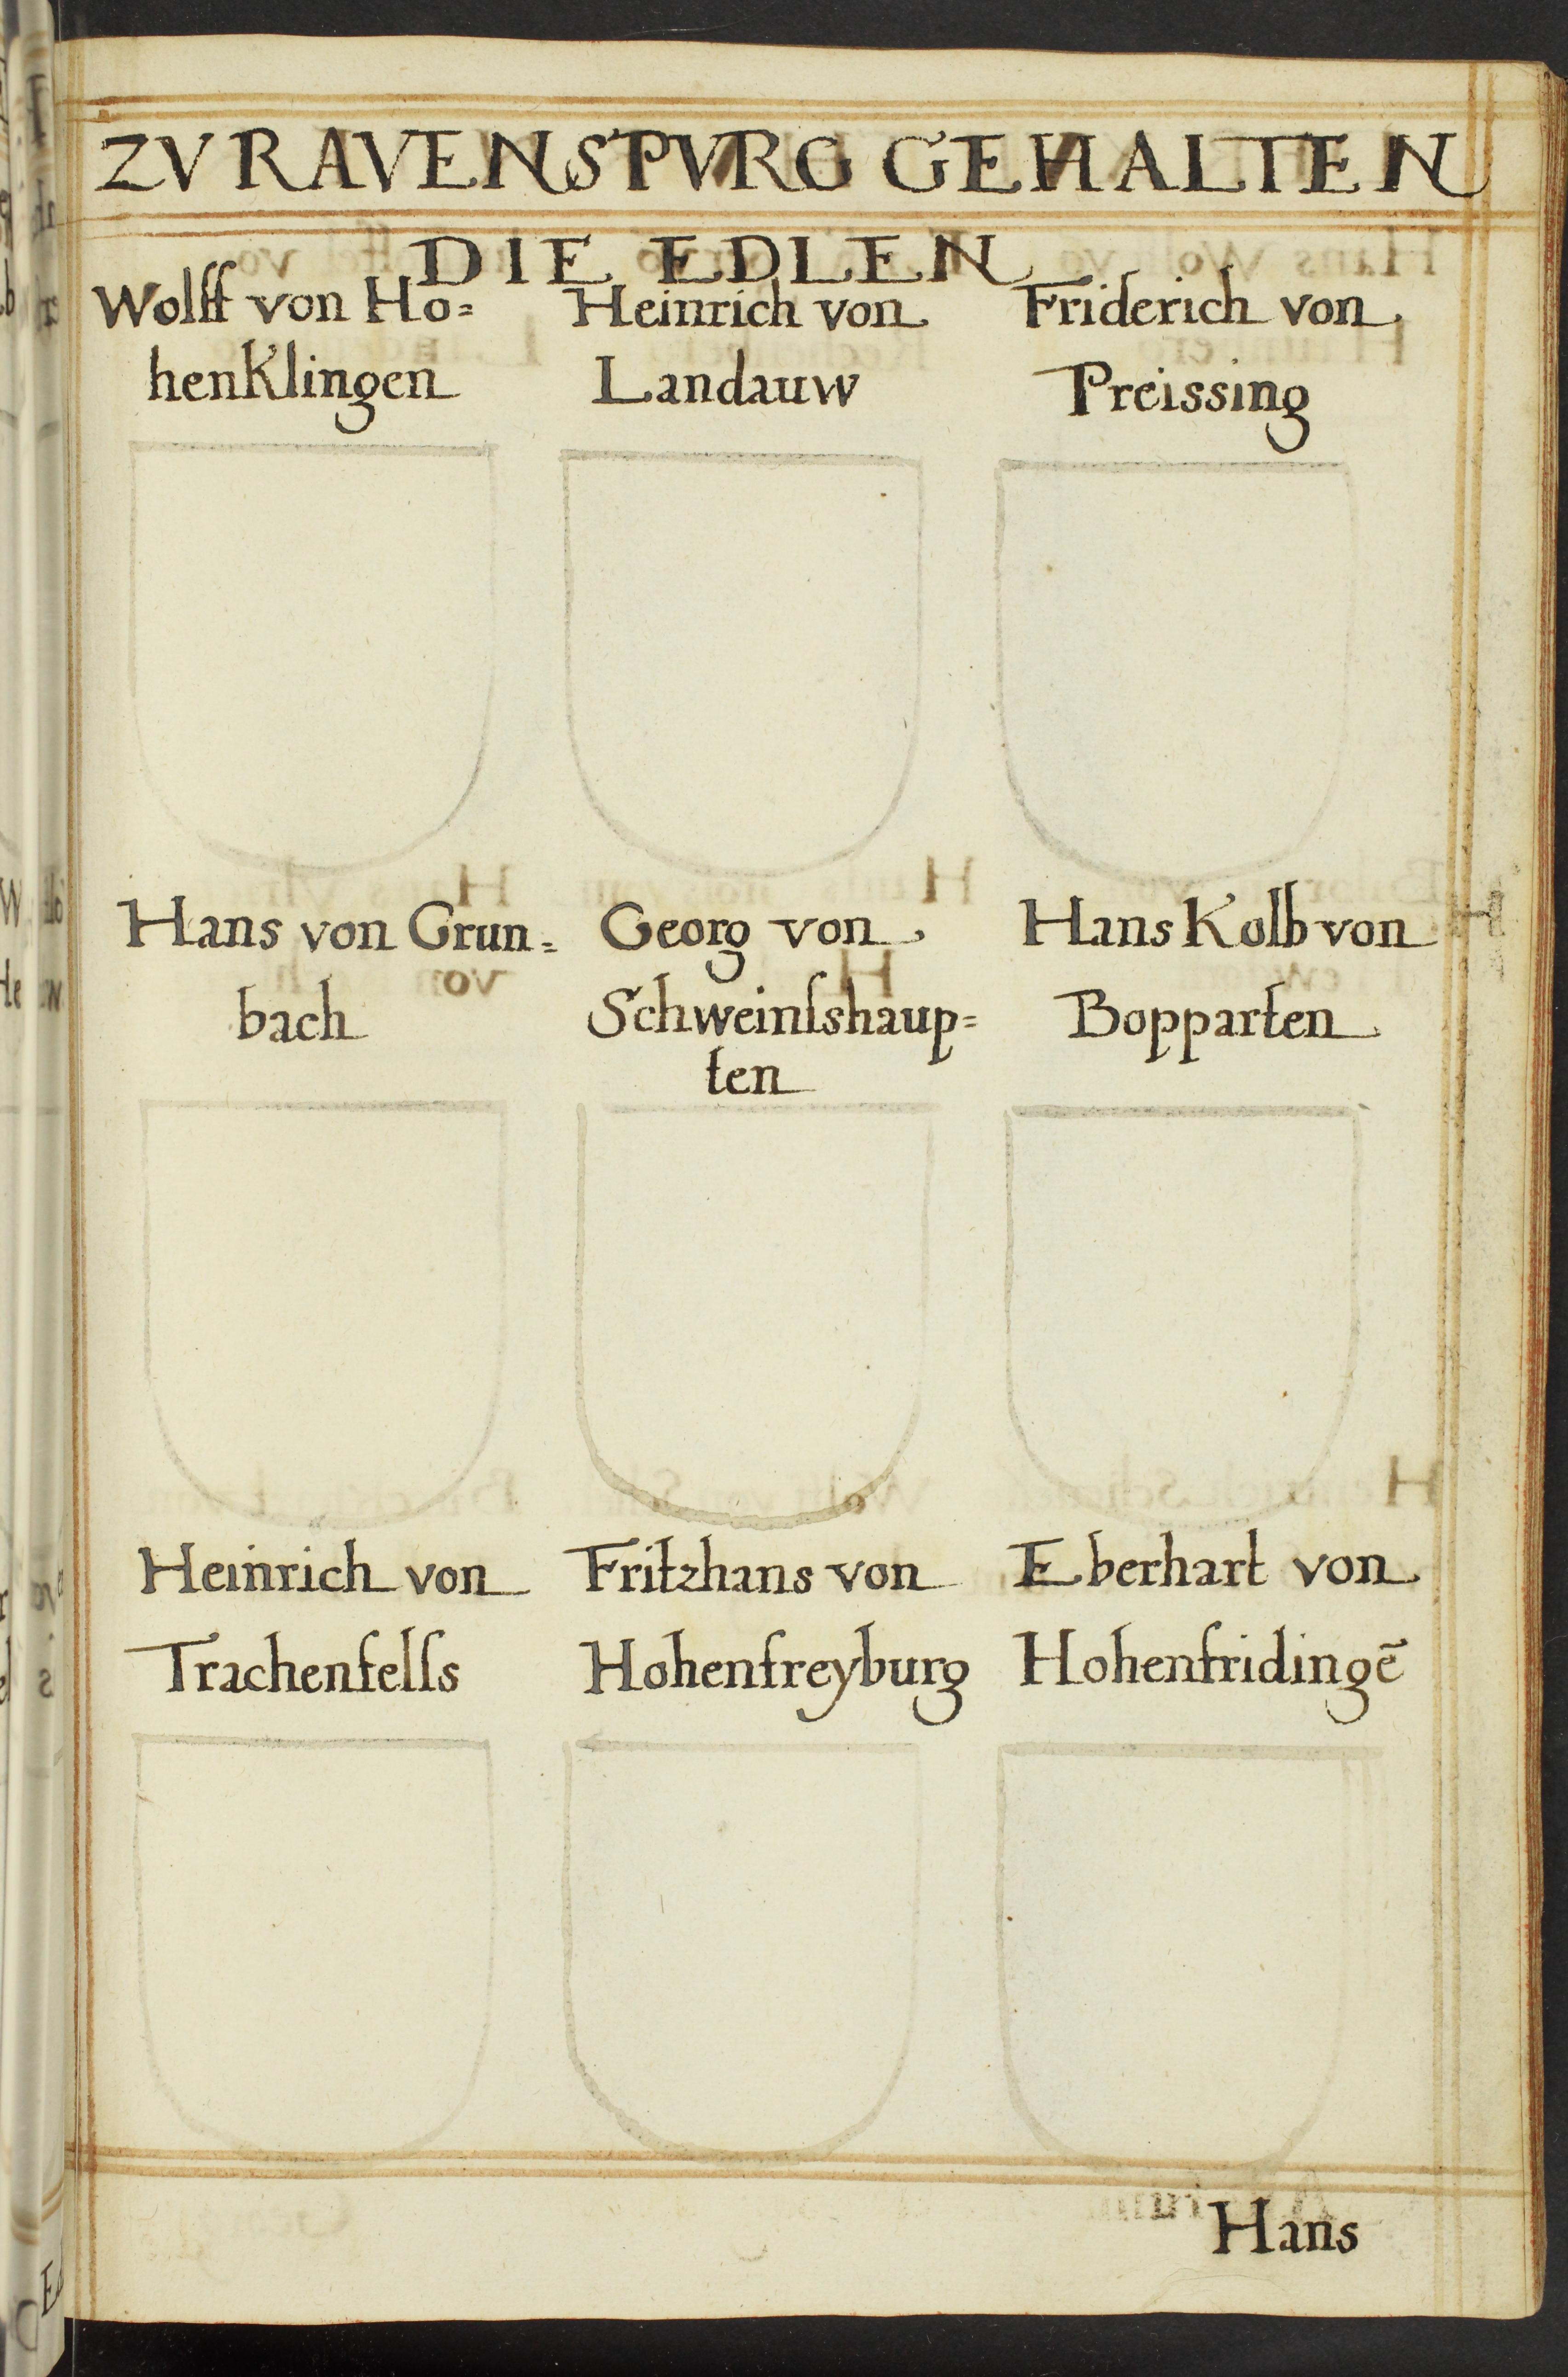 ZV RAVENSPVRG GEHALTEN
DIE EDLEN
Wolff von Ho=
henKlingen
Heinrich von
Landauw
Friderich von
Preissing
Hans von Grun=
bach
Georg von
Schweinſshaup=
ten
Hans Kolb von
Bopparten
Heinrich von
Trachenfelſs
Fritzhans von
Hohenfreyburg
Eberhart von
Hohenfridingē
Hans